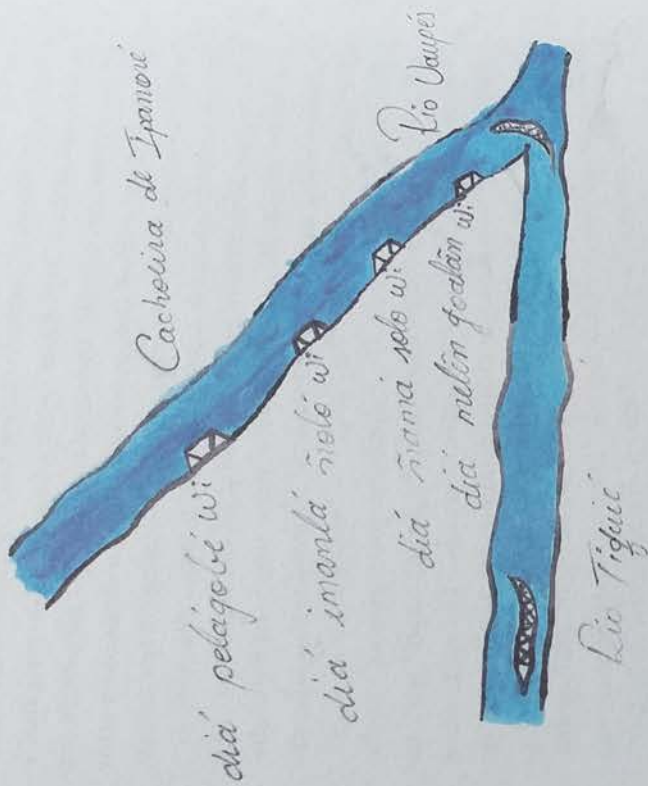 Cachoeira de Ipanoré
Rio Vaupés
diá pelágobé wi
diá imanlá ñoló wi
diá ñamá solo wi
diá nelõn goalãn wi
Rio Tiquié